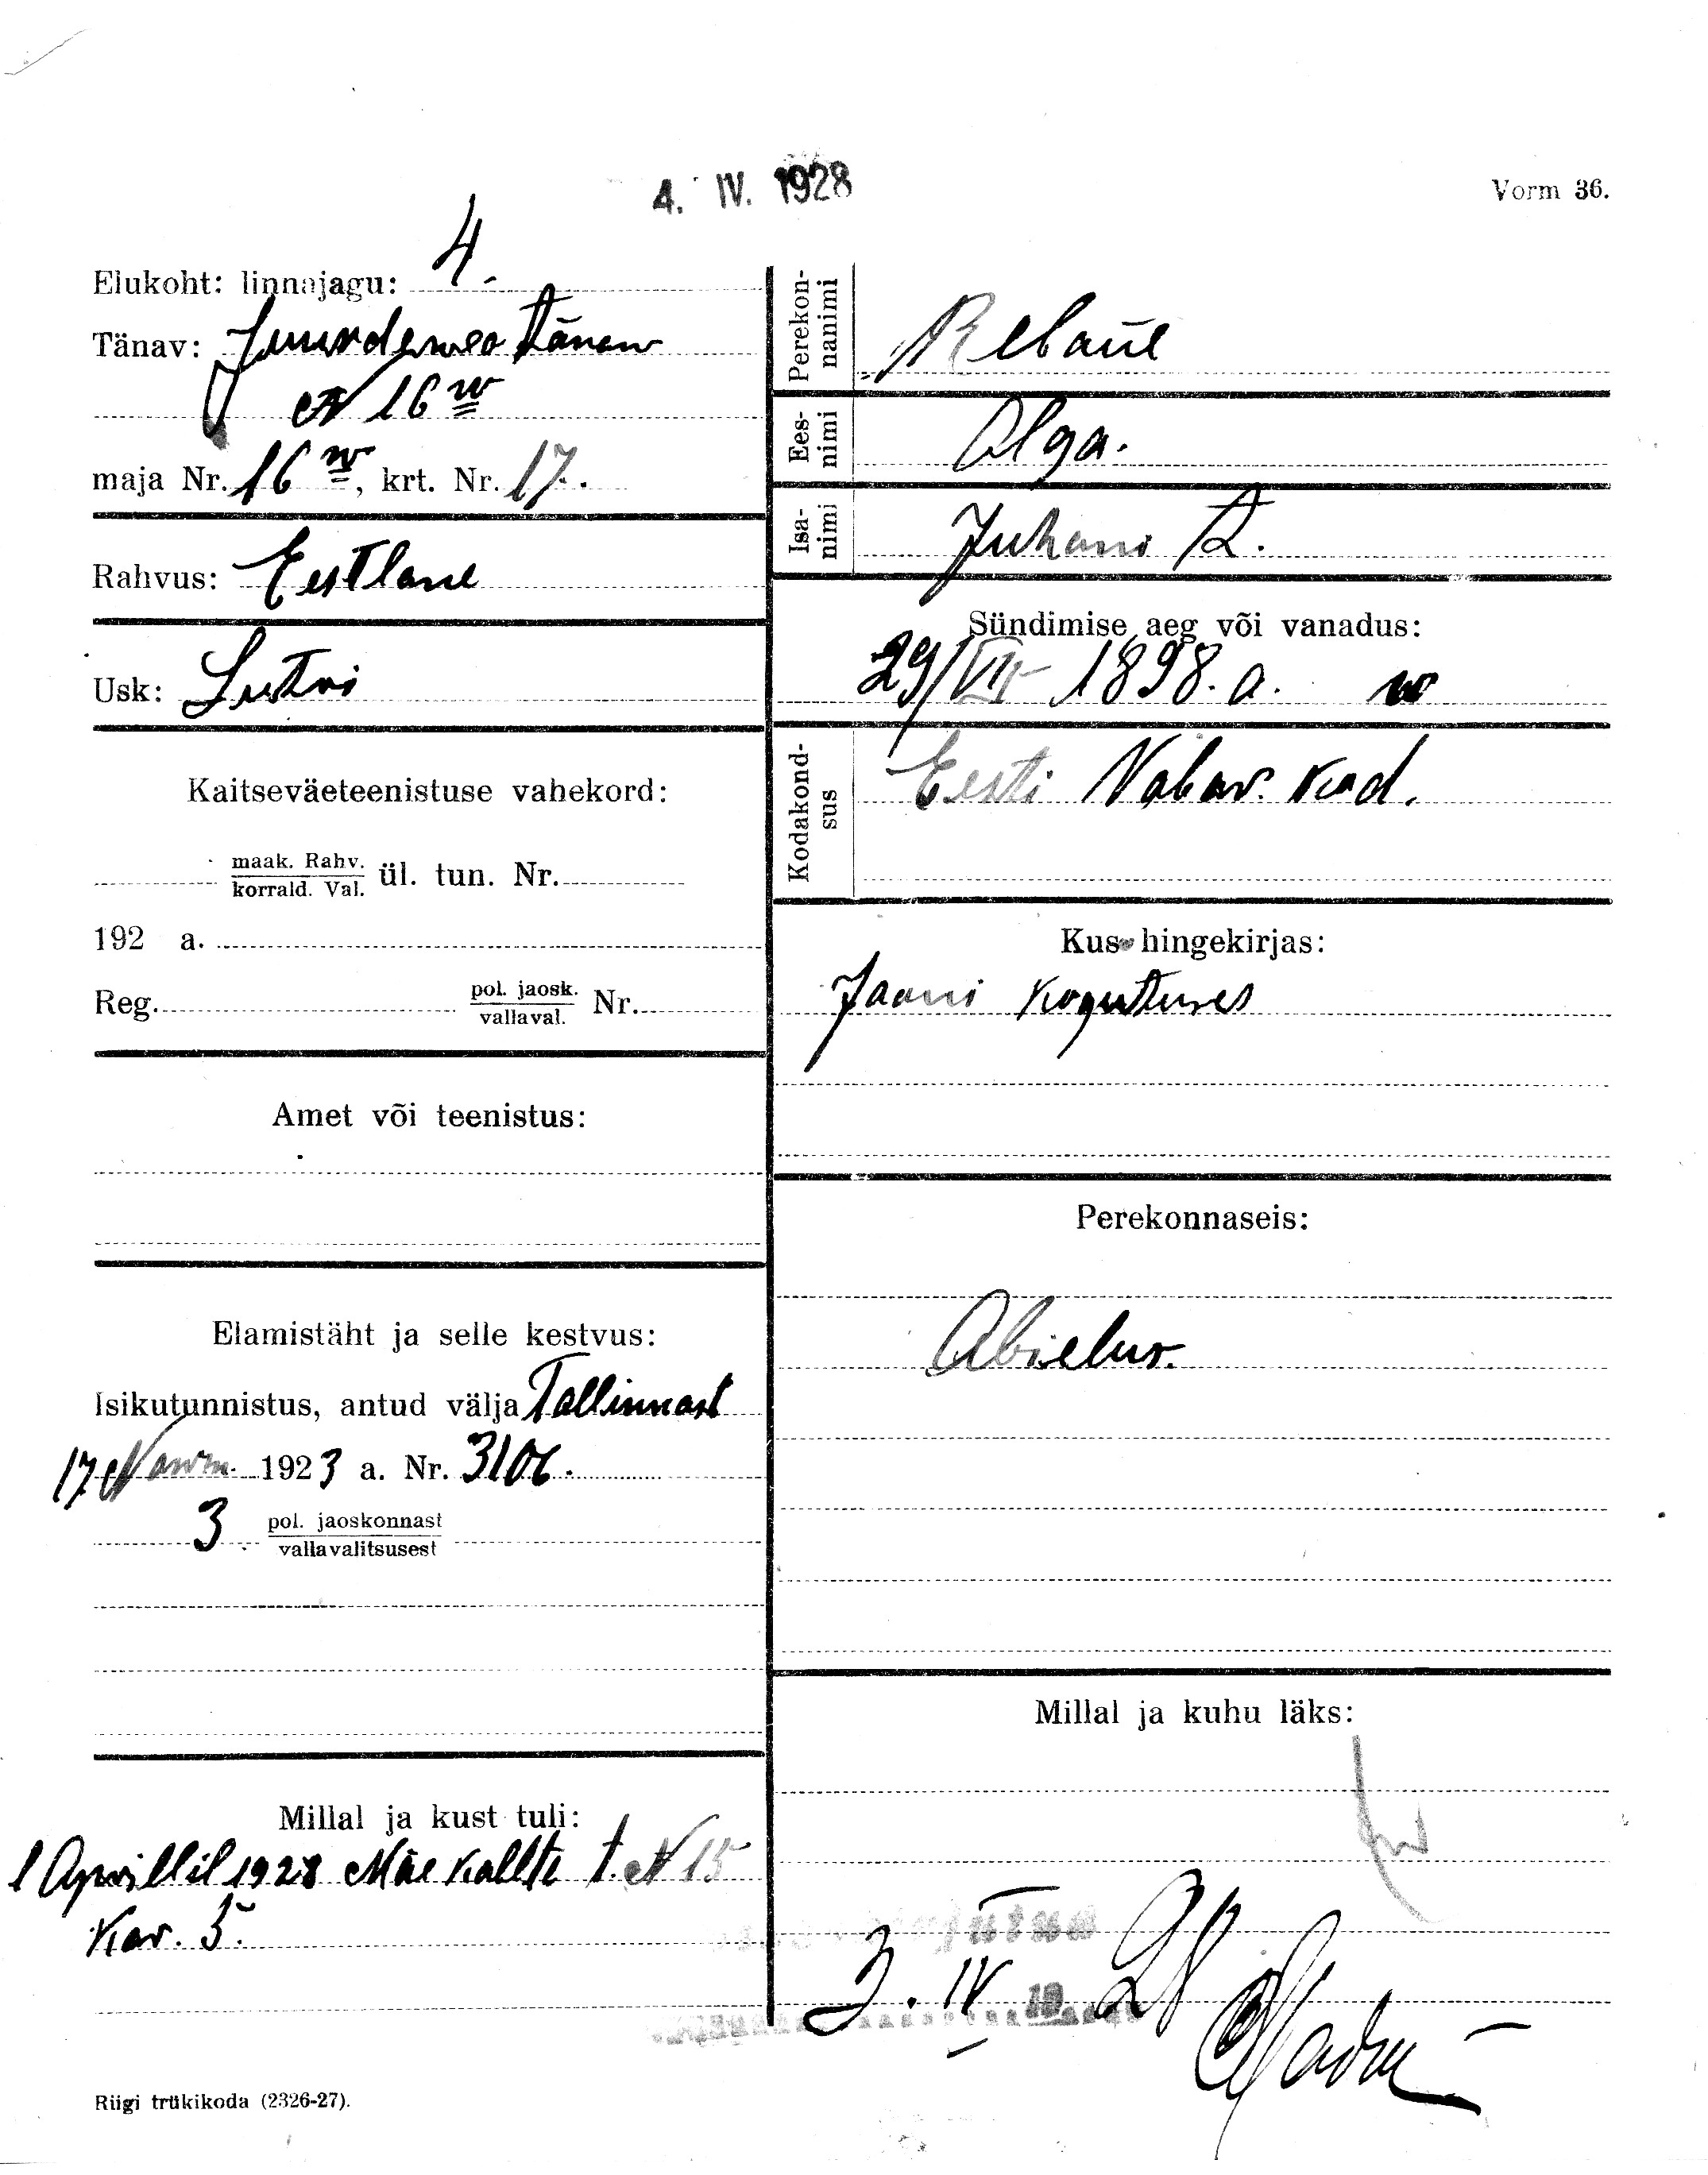 4. IV. 1928
Vorm 36.
Elukoht: linnajagu: 4.
Tänav: Juurdeweo tänaw
N 16 w
maja Nr. 16 w, krt. Nr. 17.
Rahvus: Eestlane
Usk: Lutri
Kaitseväeteenistuse vahekord:
maak. Rahv.
korrald. Val. ül. tun. Nr.
192 a.
Reg. pol. jaosk. Nr.
vallaval.
Amet või teenistus:
Elamistäht ja selle kestvus:
Isikutunnistus, antud välja Tallinnast
17 Nowm. 1923 a. Nr. 3106.
3 pol. jaoskonnast
vallavalitsusest
Millal ja kust tuli:
1 Aprillil 1928 Mäe kallte t. N 15
Kor. 5.
Riigi trükikoda (2326-27).
Perekon-
nanimi Rebane
Ees-
nimi Olga.
Isa-
nimi Juhani t.
Sündimise aeg või vanadus:
29/VII 1898. a.
Kodakond-
sus Eesti Vabar. kod.
Kus hingekirjas:
Jaani koguduses
Perekonnaseis:
Abielus.
Millal ja kuhu läks:
3. IV 28